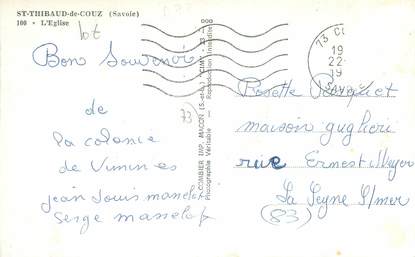 ST-THIBAUD-de-COUZ (Savoie)
100 - L'Eglise
lot
Bon Souvenir
de
la colonie
de Vimines
jean Louis
Serge
73)
COMBIER IMP. MACON (S.-et-L.) "CIM"
Photographie Véritable — Reproduction Interdite
73
19
22-
19
Rosette
maison guglieri
rue Ernest Meyer
La Seyne S/mer
(83)